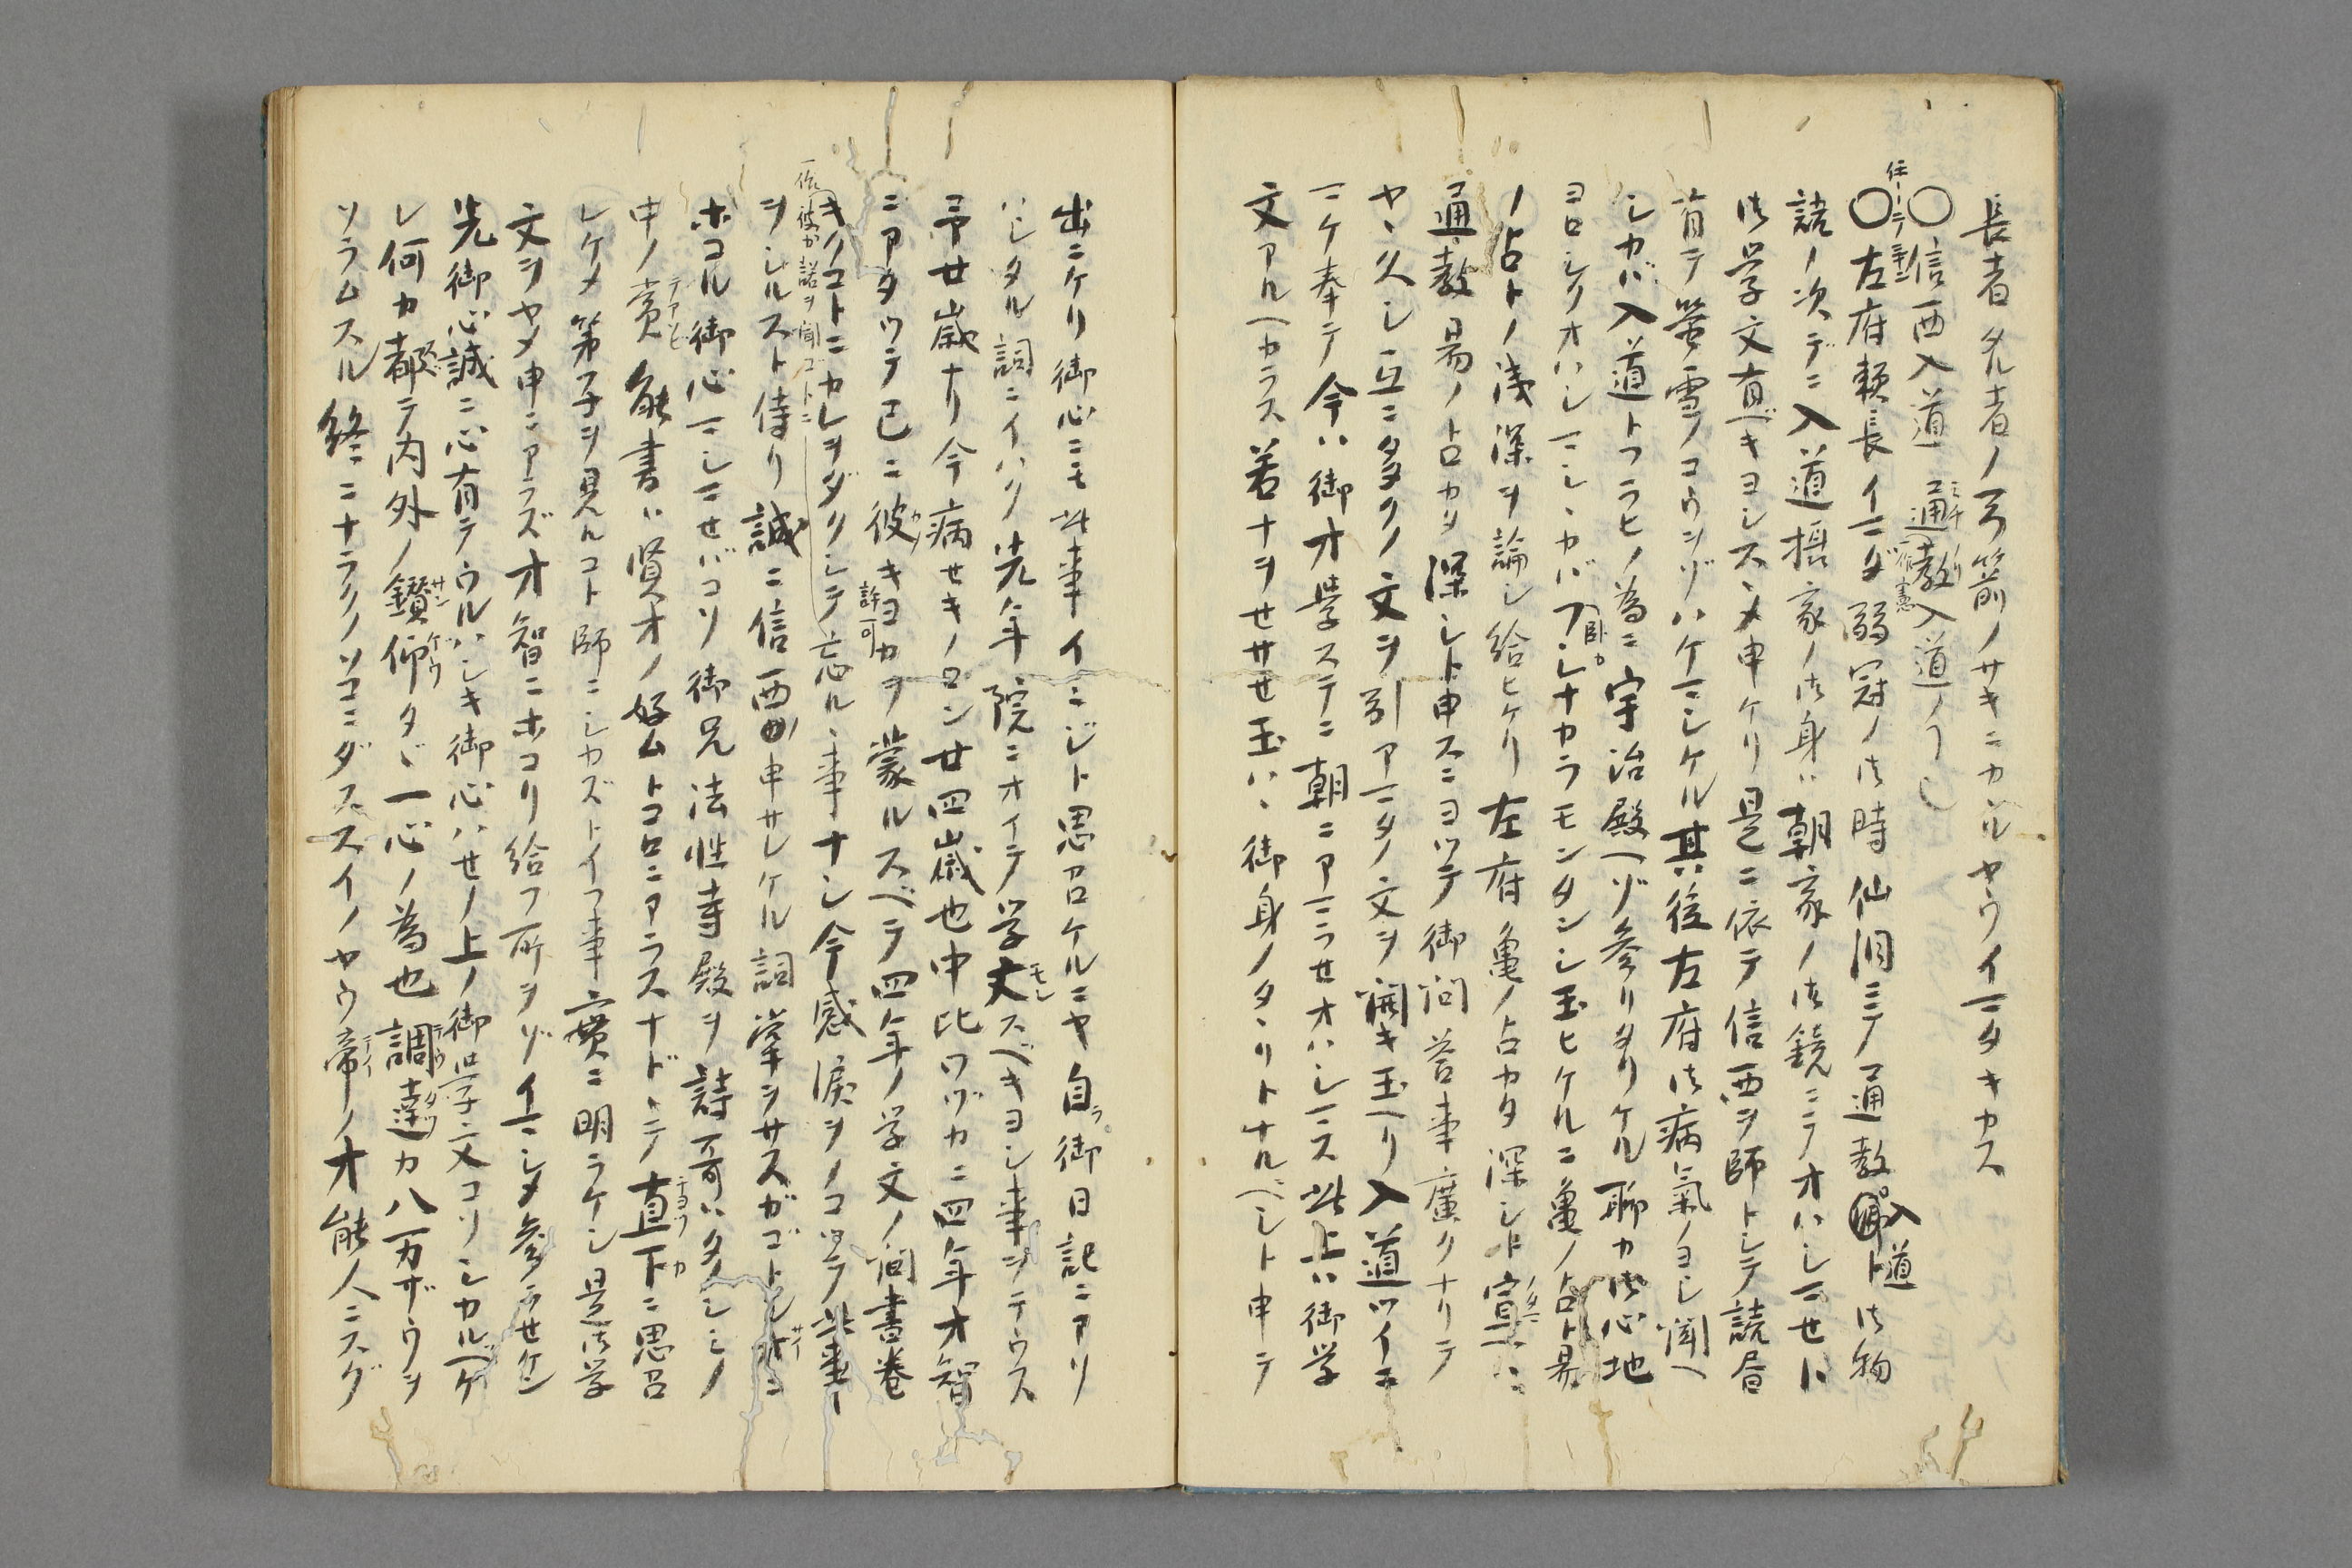 長者タル者ノ弓箭ノサキニカヽルヤウイマタキカス
〇信西入道通教入道ノ
〇左府頼長イマダ弱冠ノ御時仙洞ニテ通教入道ト御物
語ノ次デニ入道摂家ノ御身ハ朝家ノ御鏡ニテオハシマセハ
御学文有ベキヨシスヽメ申ケリ是ニ依テ信西ヲ師トシテ読書
有テ螢雪ノコウツヅハケマシケル其後左府御病氣ノヨシ聞ヘ
シカバ入道トフラヒノ為ニ宇治殿ヘゾ参リタリケル聊カ御心地
ヨロシクオハシマシヽカバフシナカラモンタンシ玉ヒケルニ亀ノ占ト易
ノ占トノ浅深ヲ論シ給ヒケリ左府亀ノ占カタ深シト宣ヘハ
通教易ノ占カタ深シト申スニヨツテ御問答事廣クナリテ
ヤヽ久シ互ニ多クノ文ヲ引アマタノ文ヲ開キ玉ヘリ入道ツイニ
マケ奉テ今ハ御才学ステニ朝ニアマラセオハシマス此上ハ御学
文アルヘカラス若ナヲせサせ玉ハヽ御身ノタヽリトナルベシト申テ
出ニケリ御心ニモ此事イミジト思召ケルニヤ自ラ御日記ニアソ
ハシタル詞ニイハク先年院ニオイテ学文スベキヨシ事ヲテウス
予廿歳ナリ今病せキノロン廿四歳也中比ワヅカニ四年才智
ニアタツテ已ニ彼キヨカヲ蒙ルスベテ四年ノ学文ノ間書巻
許可
ヲキノコトニカレヲダクシテ忘ルヽ事ナシ今感涙ヲノコツテ此事
一作彼カ諾ヲ聞コトニ
ヲシルスト侍リ誠ニ信西申サレケル詞掌ヲサスガゴトシ才ニ
ホコル御心マシマせバコソ御兄法性寺殿ヲ詩哥ハタノシミノ
中ノ賞能書ハ賢才ノ好ムトコロニアラスナドヽテ直下ニ思召
レケメ第子ヲ見ルコト師ニシカズトイフ事實ニ明ラケシ是御学
文ヲヤメ申ニアラズ才智ニホコリ給フ所ヲゾイマシメ参ラせケン
先御心誠ニ心有テウルハシキ御心ハせノ上ノ御学文コソシカルベケ
レ何カ都テ内外ノ鑽仰タヾ一心ノ為也調達カ八万ザウヲ
ソラムスル終ニナラクノソコニダスズイノヤウ帝ノ才能人ニスグ